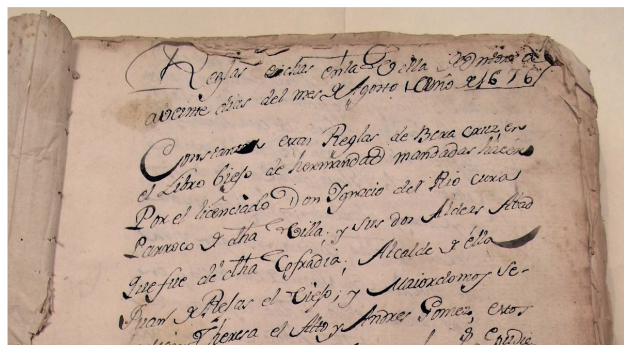 Reglas echas en la Villa
a veinte dias del mes de Agosto Año de 1676
Constaron estas Reglas de Bera Cruz, en
el Libro biejo de hermandad mandadas hacer
Por el licenciado Don Ygnacio del Rio cura
Parroco de dha Villa, y sus dos Aldeas Abad
que fue de dha Cofradia, Alcalde de ella
Juan de el Viejo; y Maiordomos Se-
Theresa el Alto, y Andres Gomez, estos